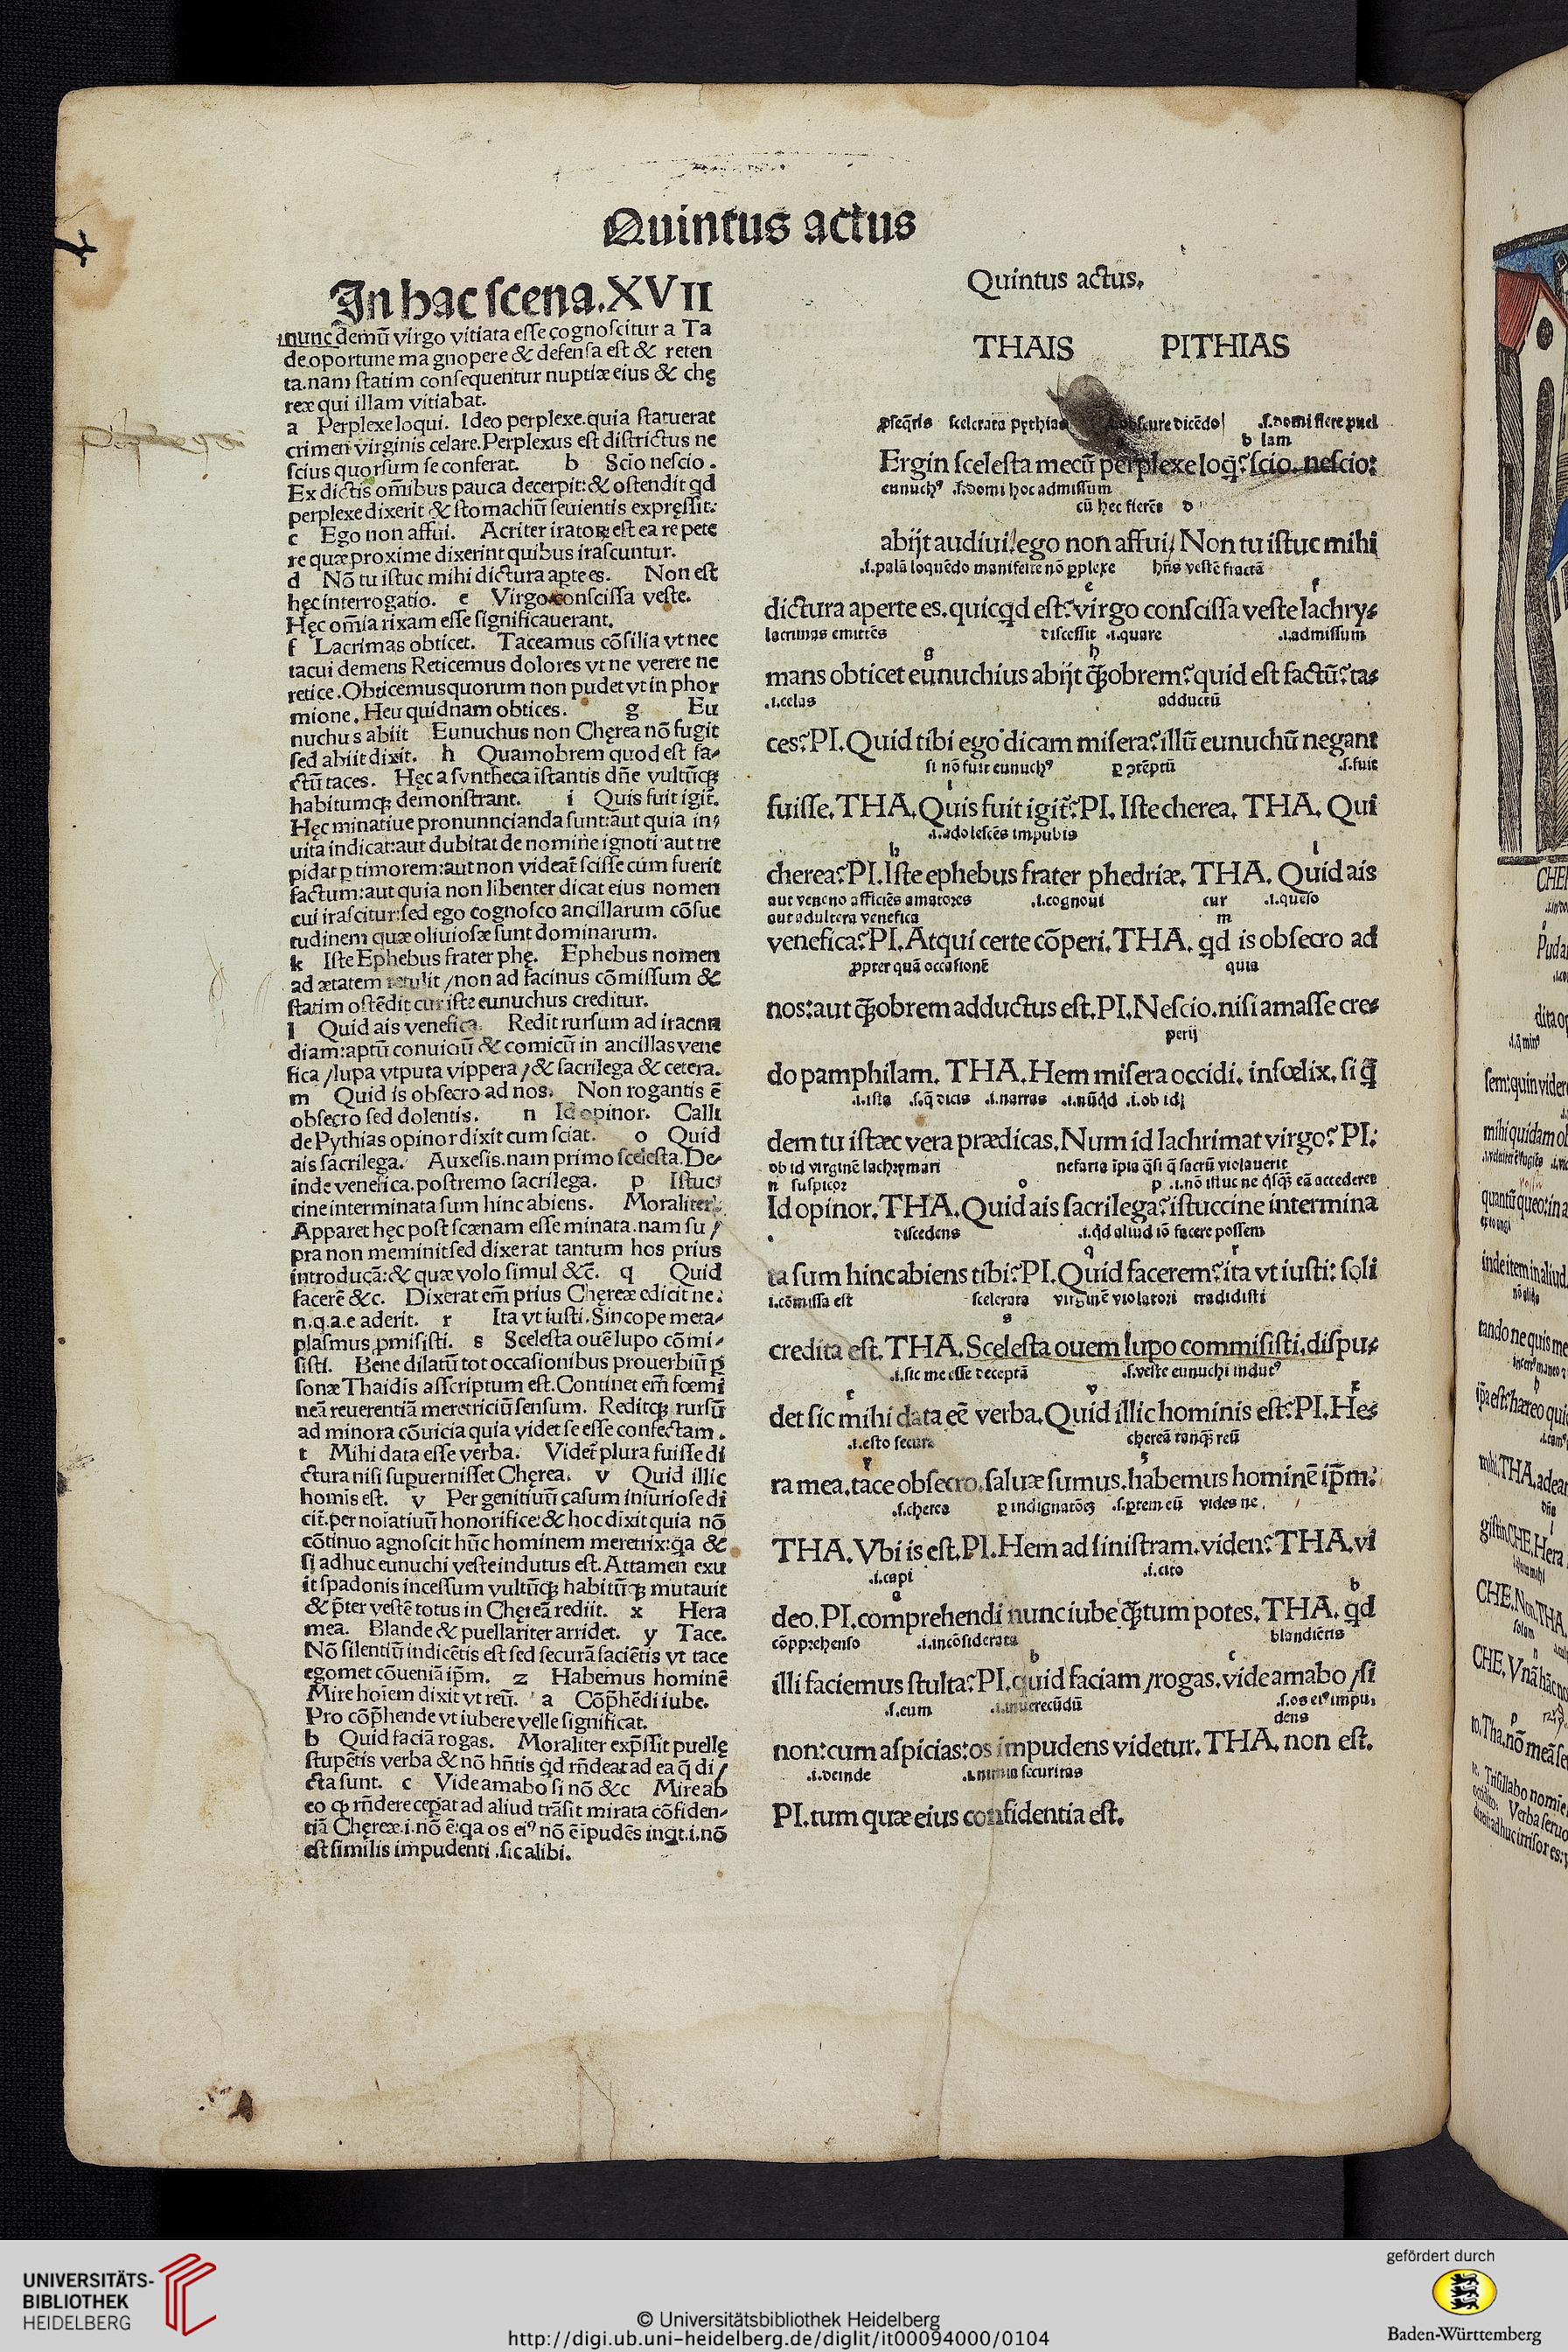 Quintus actus
In hac scena.XVII
nunc demū virgo vitiata esse cognoscitur a Ta
de oportune magnopere & defensa est & reten
ta.nam statim consequentur nuptiæ eius & chę
reæ qui illam vitiabat.
a Perplexe loqui. Ideo perplexe.quia statuerat
crimen virginis celare.Perplexus est districtus ne
scius quorsum se conferat. b Scio nescio.
Ex dictis om̄ibus pauca decerpit:& ostendit qd
perplexe dixerit & stomachū seuientis expręssit:
c Ego non affui. Acriter iratoꝝ est ea re pete
re quæ proxime dixerint quibus irascuntur.
d Nō tu istuc mihi dictura apte es. Non est
hęc interrogatio. e Virgo conscissa veste.
Hęc om̄ia rixam esse significauerant.
f Lacrimas obticet. Taceamus cōsilia vt nec
tacui demens Reticemus dolores vt ne verere ne
retice.Obticemus quorum non pudet vt in phor
mione.Heu quidnam obtices. g Eu
nuchus abiit Eunuchus non Chęrea nō fugit
sed abiit dixit. h Quamobrem quod est fa-
ctū taces. Hęc asyntheca īstantis dn̄e vultūqꝫ
habitumqꝫ demonstrant. i Quis fuit igit̄.
Hęc minatiue pronunncianda sunt:aut quia in-
uita indicat:aut dubitat de nomine ignoti aut tre
pidat ꝑ timorem:aut non videat̄ scisse cum fuerit
factum:aut quia non libenter dicat eius nomen
cui irascitur:sed ego cognosco ancillarum cōsue
tudinem quæ oliuiosæ sunt dominarum.
k Iste Ephebus frater phę. Ephebus nomen
ad ætatem retulit / non ad facinus cōmissum &
statim ostēdit cur iste eunuchus creditur.
l Quid ais venefica. Redit rursum ad iracun
diam:aptū conuiciū & comicū in ancillas vene
fica / lupa vtputa vippera / & sacrilega & cetera.
m Quid is obsecro ad nos. Non rogantis ē
obsecro sed dolentis. n Id opinor. Calli
de Pythias opinor dixit cum sciat. o Quid
ais sacrilega. Auxesis.nam primo scelesta.De-
inde venefica.postremo sacrilega. p Istuc
cine interminata sum hinc abiens. Moraliter.
Apparet hęc post scænam esse minata.nam su /
pra non meminit sed dixerat tantum hos prius
introducā:& quæ volo simul &c̄. q Quid
facerē &c. Dixerat em̄ prius Chęreæ edicit ne:
n.q.a.e aderit. r Ita vt iusti.Sincope meta-
plasmus ꝓmisisti. s Scelesta ouē lupo cōmi-
sisti. Bene dilatū tot occasionibus prouerbiū ꝑ
sonæ Thaidis asscriptum est.Continet em̄ fœmi
neā reuerentiā meretriciū sensum. Reditqꝫ rursū
ad minora cōuicia quia videt se esse confectam.
t Mihi data esse verba. Videt̄ plura fuisse di
ctura nisi superuenisset Chęrea. v Quid illic
homis est. v Per genitiuū casum iniuriose di
cit̄.per noīatiuū honorifice:& hoc dixit quia nō
cōtinuo agnoscit hūc hominem meretrix:qa &
si adhuc eunuchi veste indutus est.Attamen exu
it spadonis incessum vultūqꝫ habitūqꝫ mutauit
& p̄ter vestē totus in Chęreā rediit. x Hera
mea. Blande & puellariter arridet. y Tace.
Nō silentiū indicētis est sed securā faciētis vt tace
egomet cōueniā ip̄m. z Habemus hominē
Mire hoīem dixit vt reū. a Cōp̄hēdi iube.
Pro cōp̄hende vt iubere velle significat.
b Quid faciā rogas. Moraliter exp̄ssit puellę
stupētis verba & nō hn̄tis qd rn̄deat ad ea q̄ di /
cta sunt. c Vide amabo si nō &c Mire ab
eo qꝫ rn̄dere ceperat ad aliud trāsit mirata cōfiden-
tiā Chęreæ.i.nō ē:qa os eiꝰ nō ē īpudēs inqt.i.nō
est similis impudenti .sic alibi.
Quintus actus.
THAIS PITHIAS
ꝓseq̄ris scelerata pythias obscure dicēdo .s.domi flere puel
b lam
Ergin scelesta mecū perplexe loq̄?scio.nescio:
eunuchꝰ .s.domi hoc admissum
cū hec fierēt d
abijt audiui:ego non affui / Non tu istuc mihi
.i.palā loquēdo manifeste nō ꝑplexe hn̄s vestē fractā
e f
dictura aperte es.quicqd est?virgo conscissa veste lachry-
lacrimas emittēs discessit .i.quare .i.admissum
g h
mans obticet eunuchius abijt q̄obrem?quid est factū?ta-
.i.celas adductū
ces?PI.Quid tibi ego dicam misera?illū eunuchū negant
si nō fuit eunuchꝰ ꝑ ɔtēptū .s.fuit
i
fuisse.THA.Quis fuit igit̄?PI.Iste cherea. THA. Qui
.i.adolescēs impubis
k l
cherea?PI.Iste ephebus frater phedriæ. THA. Quid ais
aut veneno afficiēs amatores .i.cognoui cur .i.queso
aut adultera venefica m
venefica?PI.Atqui certe cōperi.THA. qd is obsecro ad
ꝓpter quā occasionē quia
nos:aut q̄obrem adductus est.PI.Nescio.nisi amasse cre-
perij
do pamphilam. THA.Hem misera occidi. infœlix. si q̄
.i.ista .s.q̄ dicis .i.narras .i.nūqd .i.ob id
dem tu istæc vera prædicas.Num id lachrimat virgo? PI:
ob id virginē lachrymari nefaria īpia q̄si q̄ sacrū violauerit
n suspicor o p .i.nō istuc ne q̄sq̄ eā accederet
Id opinor.THA.Quid ais sacrilega?istuccine intermina
discedens .i.qd aliud iō facere possem
q r
ta sum hinc abiens tibi?PI.Quid facerem?ita vt iusti: soli
i.cōmissa est scelerata virginē violatori tradidisti
s
credita est.THA.Scelesta ouem lupo commisisti.dispu-
.i.sic me esse deceptā .s.veste eunuchi indutꝰ
t v x
det sic mihi data eē verba.Quid illic hominis est?PI.He-
.i.esto secura chereā tanq̄ reū
y z
ra mea.tace obsecro.saluæ sumus.habemus hominē ip̄m:
.s.cherea ꝑ indignatōeꝫ .s.ꝑtem eū vides ne
THA.Vbi is est.PI.Hem ad sinistram.viden?THA.vi
.i.capi .i.cito
a b
deo.PI.comprehendi nunc iube q̄tum potes.THA. qd
cōpprehenso .i.incōsiderata blandiētis
b c
illi faciemus stulta?PI.quid faciam / rogas.vide amabo / si
.s.eum .i.inuerecūdū .s.os eiꝰ impu.
dens
non:cum aspicias:os impudens videtur.THA. non est.
.i.deinde .i.nimia securitas
PI.tum quæ eius confidentia est.
UNIVERSITÄTS-
BIBLIOTHEK
HEIDELBERG
© Universitätsbibliothek Heidelberg
http://digi.ub.uni-heidelberg.de/diglit/it00094000/0104
gefördert durch
Baden-Württemberg